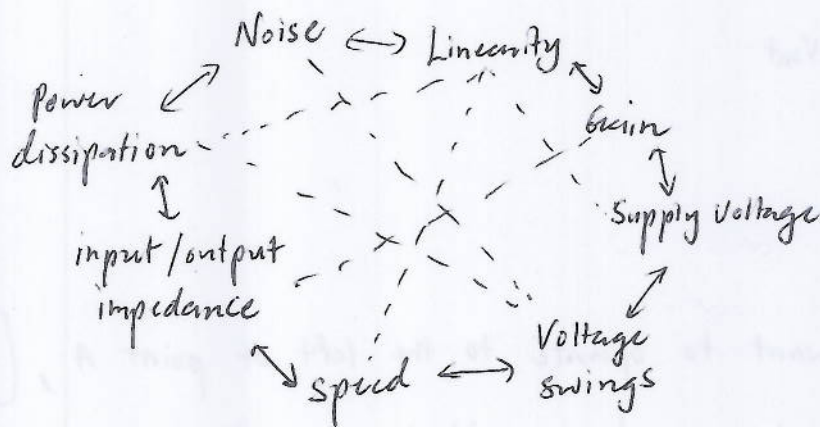 Noise ↔ Linearity
Power
dissipation
Gain
Supply Voltage
input/output
impedance
Voltage
swings
speed